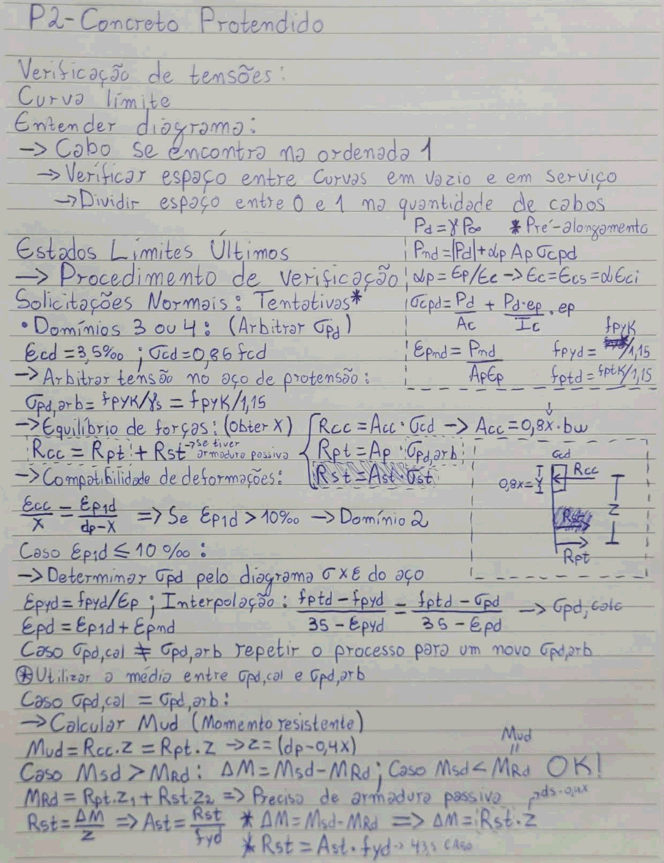 P2-Concreto Protendido
Verificação de tensões:
Curva límite
Entender diagrama:
→ Cabo se encontra na ordenada 1
→ Verificar espaço entre Curvas em vazio e em serviço
→ Dividir espaço entre 0 e 1 na quantidade de cabos
Pd = γP∞ *Pré-alongamento
Pnd = |Pd| + αp Ap σcpd
αp = Ep/Ec → Ec = Ecs = αi Eci
σcpd = Pd/Ac + Pd·ep/Ic · ep
εpnd = Pnd/ApEp
fpyd = fpyk/1,15
fptd = fptk/1,15
Estados Límites Últimos
→ Procedimento de verificação
Solicitações Normais: Tentativas*
• Domínios 3 ou 4: (Arbitrar σpd)
εcd = 3,5‰ ; σcd = 0,86 fcd
→ Arbitrar tensão no aço de protensão:
σpd,arb = fpyk/γs = fpyk/1,15
→ Equilíbrio de forças: (obter X)
Rcc = Rpt + Rst → se tiver armadura passiva
Rcc = Acc · σcd → Acc = 0,8x · bw
Rpt = Ap · σpd,arb
Rst = Ast · σst
σcd
0,8x = Y
Rcc
Z
Rst
Rpt
→ Compatibilidade de deformações:
εcc/x = εp1d/dp-x => Se εp1d > 10‰ → Domínio 2
Caso εp1d ≤ 10‰ :
→ Determinar σpd pelo diagrama σxε do aço
εpyd = fpyd/Ep ; Interpolação: fptd - fpyd/35 - εpyd = fptd - σpd/35 - εpd → σpd,calc
εpd = εp1d + εpnd
Caso σpd,cal ≠ σpd,arb repetir o processo para um novo σpd,arb
⊛ Utilizar a média entre σpd,cal e σpd,arb
Caso σpd,cal = σpd,arb:
→ Calcular Mud (Momento resistente)
Mud = Rcc.Z = Rpt.Z → Z = (dp-0,4x)
Mud
=
Caso Msd > MRd : ΔM = Msd - MRd ; Caso Msd < MRd OK!
MRd = Rpt.Z1 + Rst.Z2 => Precisa de armadura passiva → ds-0,4x
Rst = ΔM/Z => Ast = Rst/fyd * ΔM = Msd - MRd => ΔM = Rst · Z
* Rst = Ast · fyd → 43,5 CA50